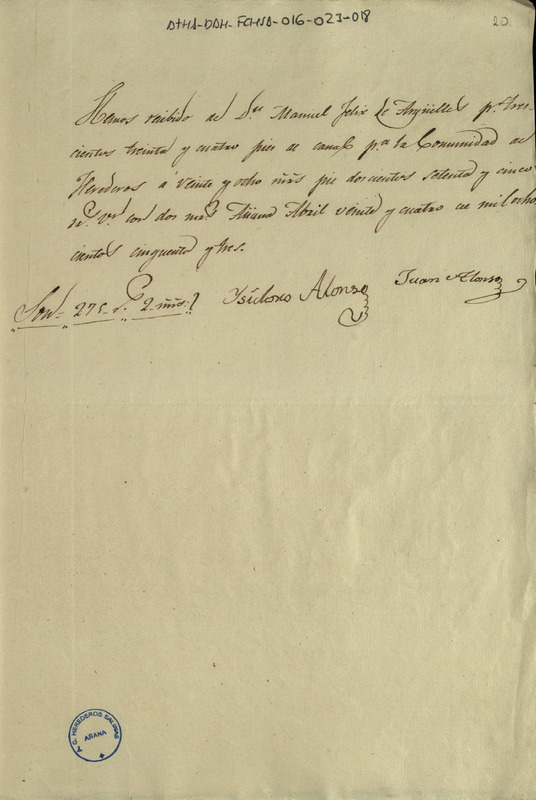 ATHA-DAH-FCHNA-016-023-018
20
Hemos recibido de Dn Manuel Felix de Argüelles pr. tres-
cientos treinta y cuatro pies de canal pa. la Comunidad de
Herederos á veinte y ocho mrs pie doscientos setenta y cinco
rs. vn con dos mrs Añana Abril veinte y cuatro de mil ocho
cientos cinquenta y tres.
Son 275 rs. 2 mrs.
Ysidoro Alonso
Juan Alonso
G. HEREDEROS SALINAS
AÑANA